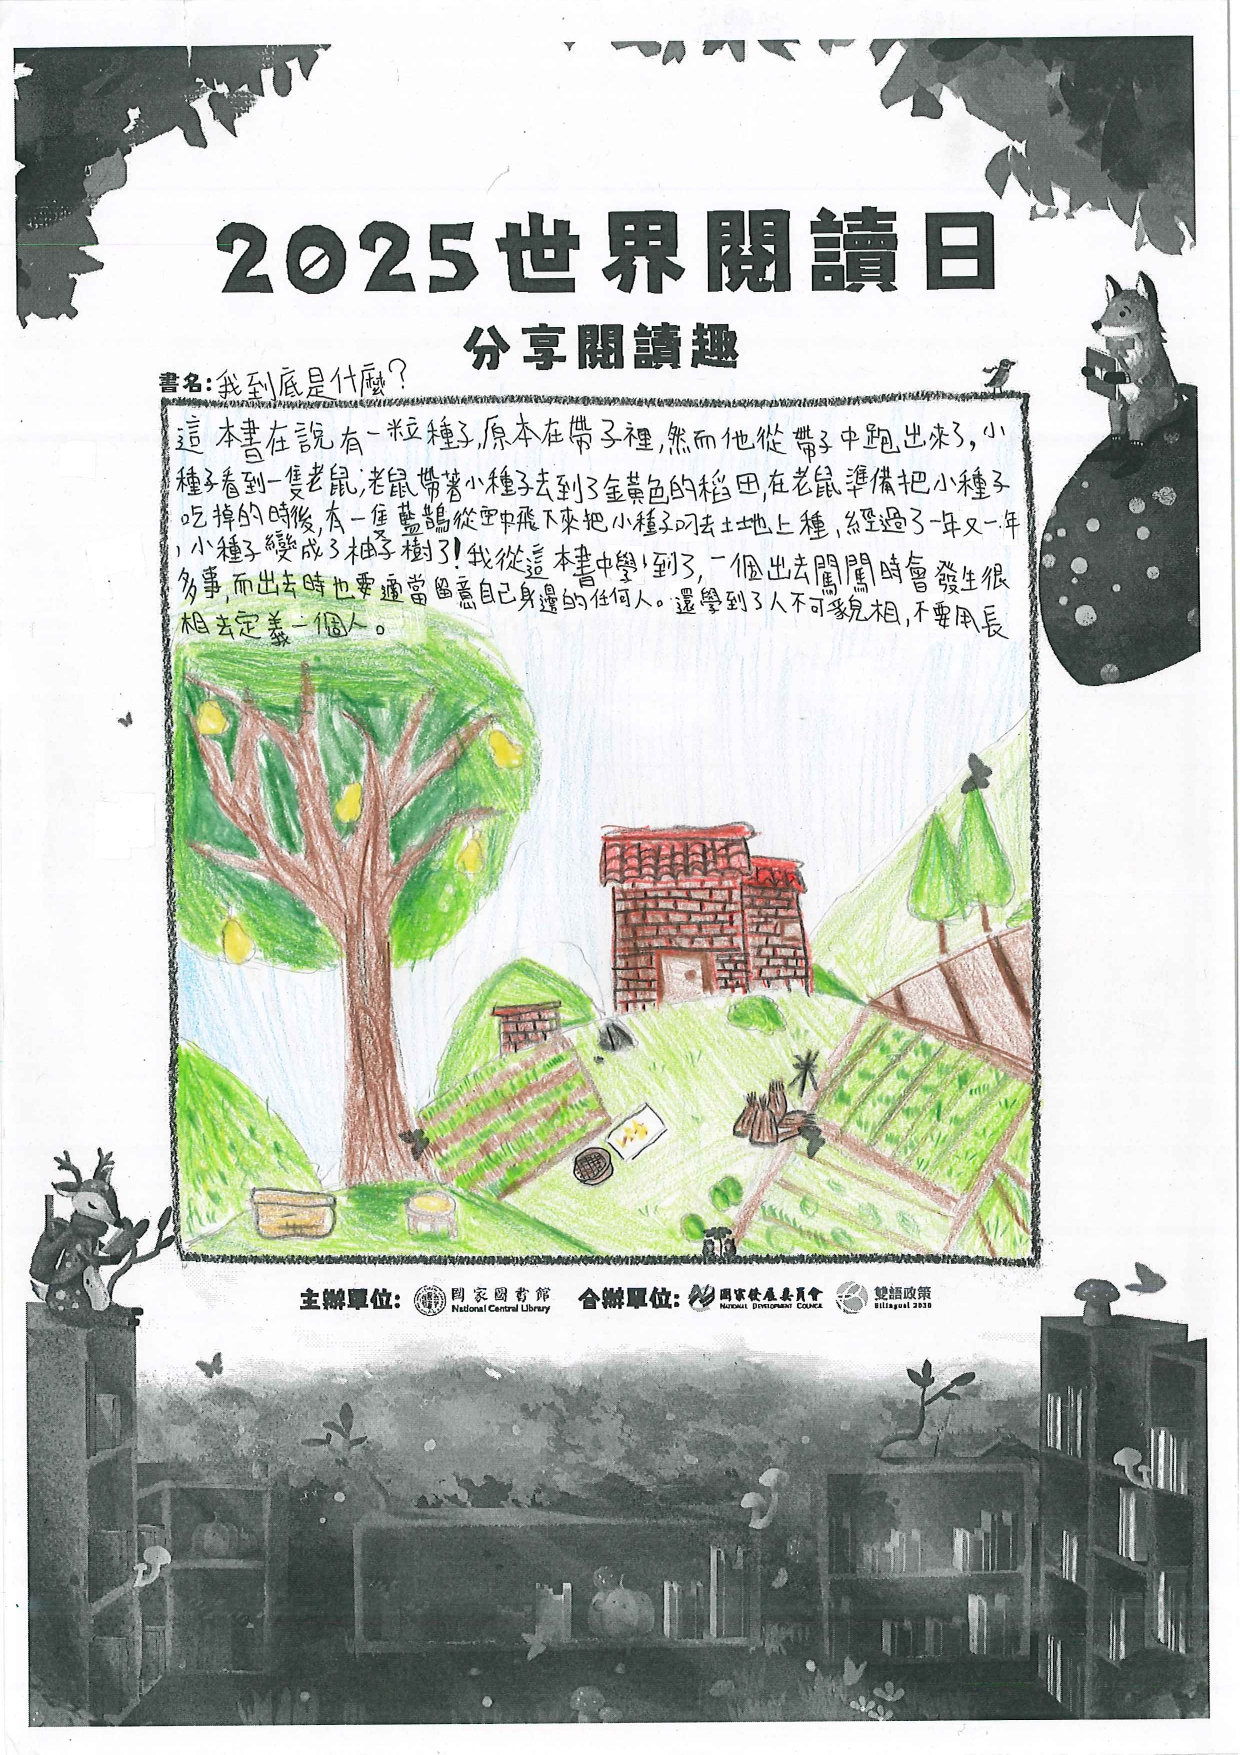 2025世界閱讀日
分享閱讀趣
書名:我到底是什麼?
這本書在說有一粒種子,原本在帶子裡,然而他從帶子中跑出來了,小
種子看到一隻老鼠;老鼠帶著小種子去到了金黃色的稻田,在老鼠準備把小種子
吃掉的時後,有一隻藍鵲從空中飛下來把小種子叼去土地上種,經過了一年又一年
,小種子變成了柚子樹了!我從這本書中學到了,一個出去闖闖時會發生很
多事,而出去時也要適當留意自己身邊的任何人。還學到了人不可貌相,不要用長
相去定義一個人。
主辦單位: 國家圖書館 合辦單位: 國家發展委員會 雙語政策
National Central Library NATIONAL DEVELOPMENT COUNCIL Bilingual 2030